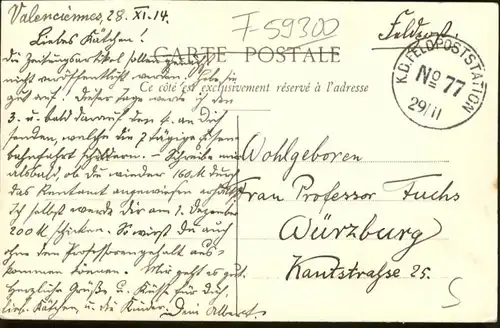 Valenciennes, 28. XI. 14.
F-59300
Liebes Kätchen!
Feldpost.
die Zeitungsartikel sollen
CARTE POSTALE
nicht veröffentlicht werden. Hebe sie
gut auf! Dieser Tage werde ich den
Ce côté est exclusivement réservé à l'adresse
K.D. FELDPOSTSTATION
No 77
29/11
3. u. bald darauf den 4. an dich
senden, welche die 7 tägige Eisen-
bahnfahrt schildern. – Schreibe mir
alsbald, ob du wieder 160 M durch
das Rentamt angewiesen erhältst.
Ich selbst werde dir am 1. Dezember
200 M schicken. So wirst du auch
ohne den Professorengehalt aus-
kommen können. Mir geht es gut.
Herzliche Grüße u. Küsse für dich,
lieb. Kätchen, u. die Kinder. Dein Albert.
Wohlgeboren
Frau Professor Fuchs
Würzburg
Kantstraße 25.
5